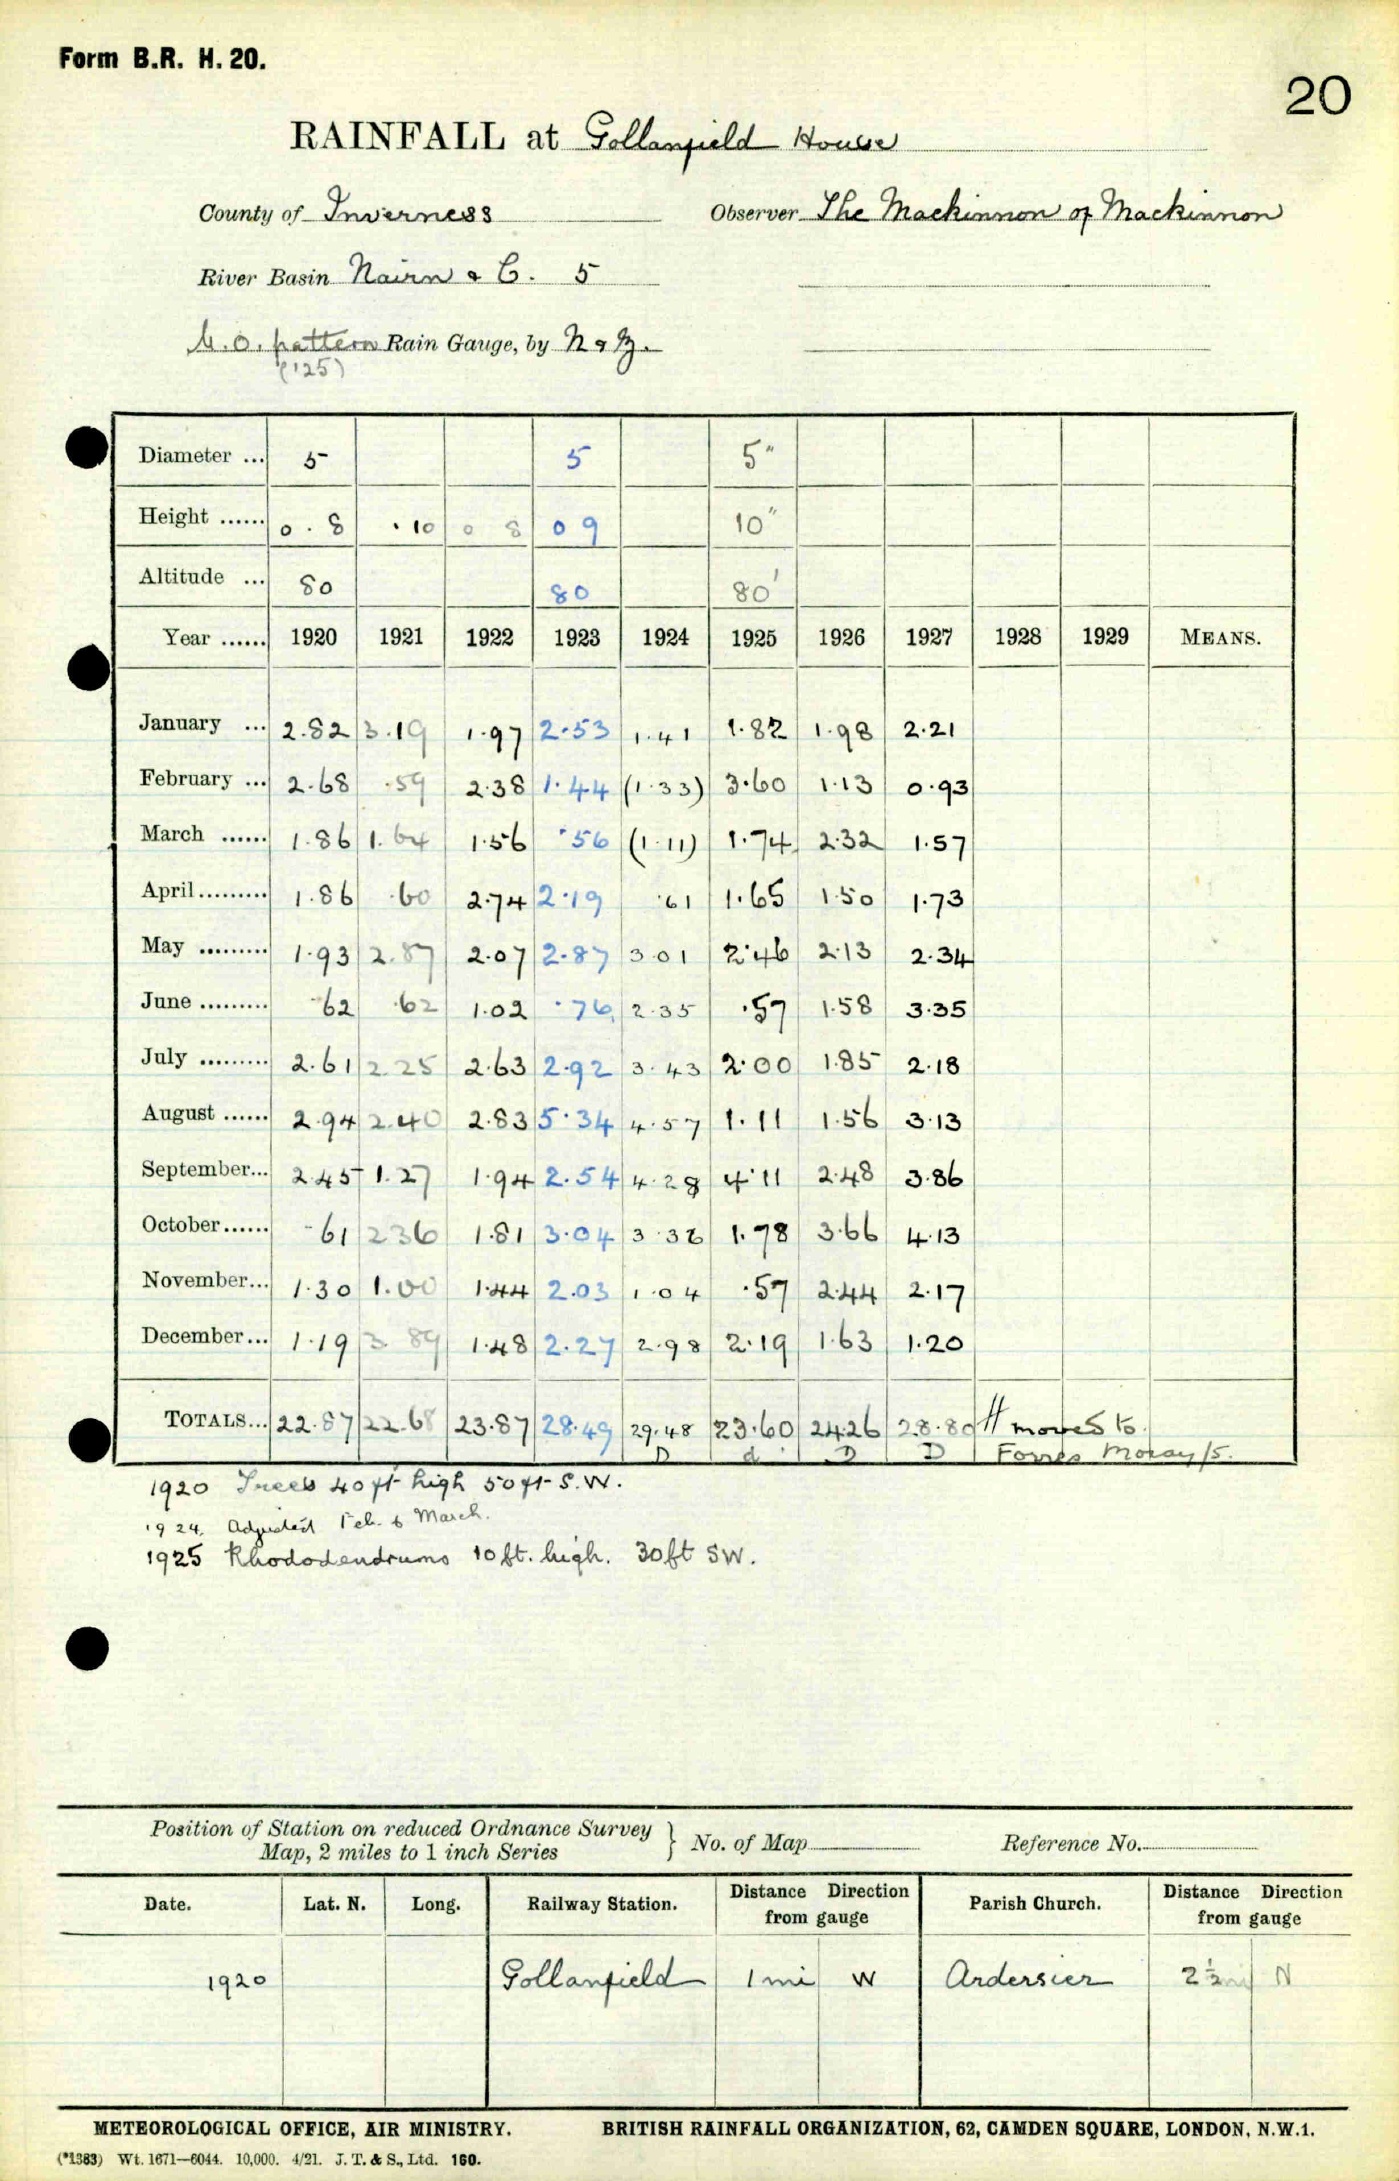 Form B.R. H. 20.
20
RAINFALL at Gollanfield House
County of Inverness Observer The Mackinnon of Mackinnon
River Basin Nairn & C. 5
M.O. pattern Rain Gauge, by N & Z.
('25)
Diameter ... 5 5 5"
Height ...... 0.8 .10 0 8 0 9 10"
Altitude ... 80 80 80'
Year ...... 1920 1921 1922 1923 1924 1925 1926 1927 1928 1929 MEANS.
January ... 2.82 3.19 1.97 2.53 1.41 1.82 1.98 2.21
February ... 2.68 .59 2.38 1.44 (1.33) 3.60 1.13 0.93
March ...... 1.86 1.64 1.56 .56 (1.11) 1.74 2.32 1.57
April ......... 1.86 .60 2.74 2.19 .61 1.65 1.50 1.73
May ......... 1.93 2.87 2.07 2.87 3.01 2.46 2.13 2.34
June ......... .62 .62 1.02 .76 2.35 .57 1.58 3.35
July ......... 2.61 2.25 2.63 2.92 3.43 2.00 1.85 2.18
August ...... 2.94 2.40 2.83 5.34 4.57 1.11 1.56 3.13
September... 2.45 1.27 1.94 2.54 4.28 4.11 2.48 3.86
October...... .61 2.36 1.81 3.04 3.36 1.78 3.66 4.13
November... 1.30 1.00 1.44 2.03 1.04 .57 2.44 2.17
December... 1.19 3.89 1.48 2.27 2.98 2.19 1.63 1.20
TOTALS... 22.87 22.68 23.87 28.49 29.48 23.60 24.26 28.80 // moved to
D d D D Forres Moray/5.
1920 Trees 40 ft high 50 ft S.W.
1924. Adjusted Feb. & March.
1925 Rhododendrums 10 ft. high. 30ft SW.
Position of Station on reduced Ordnance Survey
Map, 2 miles to 1 inch Series } No. of Map Reference No.
Date. Lat. N. Long. Railway Station. Distance Direction from gauge Parish Church. Distance Direction from gauge
1920 Gollanfield 1 mi W Ardersier 2½ mi N
METEOROLOGICAL OFFICE, AIR MINISTRY. BRITISH RAINFALL ORGANIZATION, 62, CAMDEN SQUARE, LONDON, N.W.1.
(*1383) Wt. 1671—6044. 10,000. 4/21. J. T. & S., Ltd. 160.